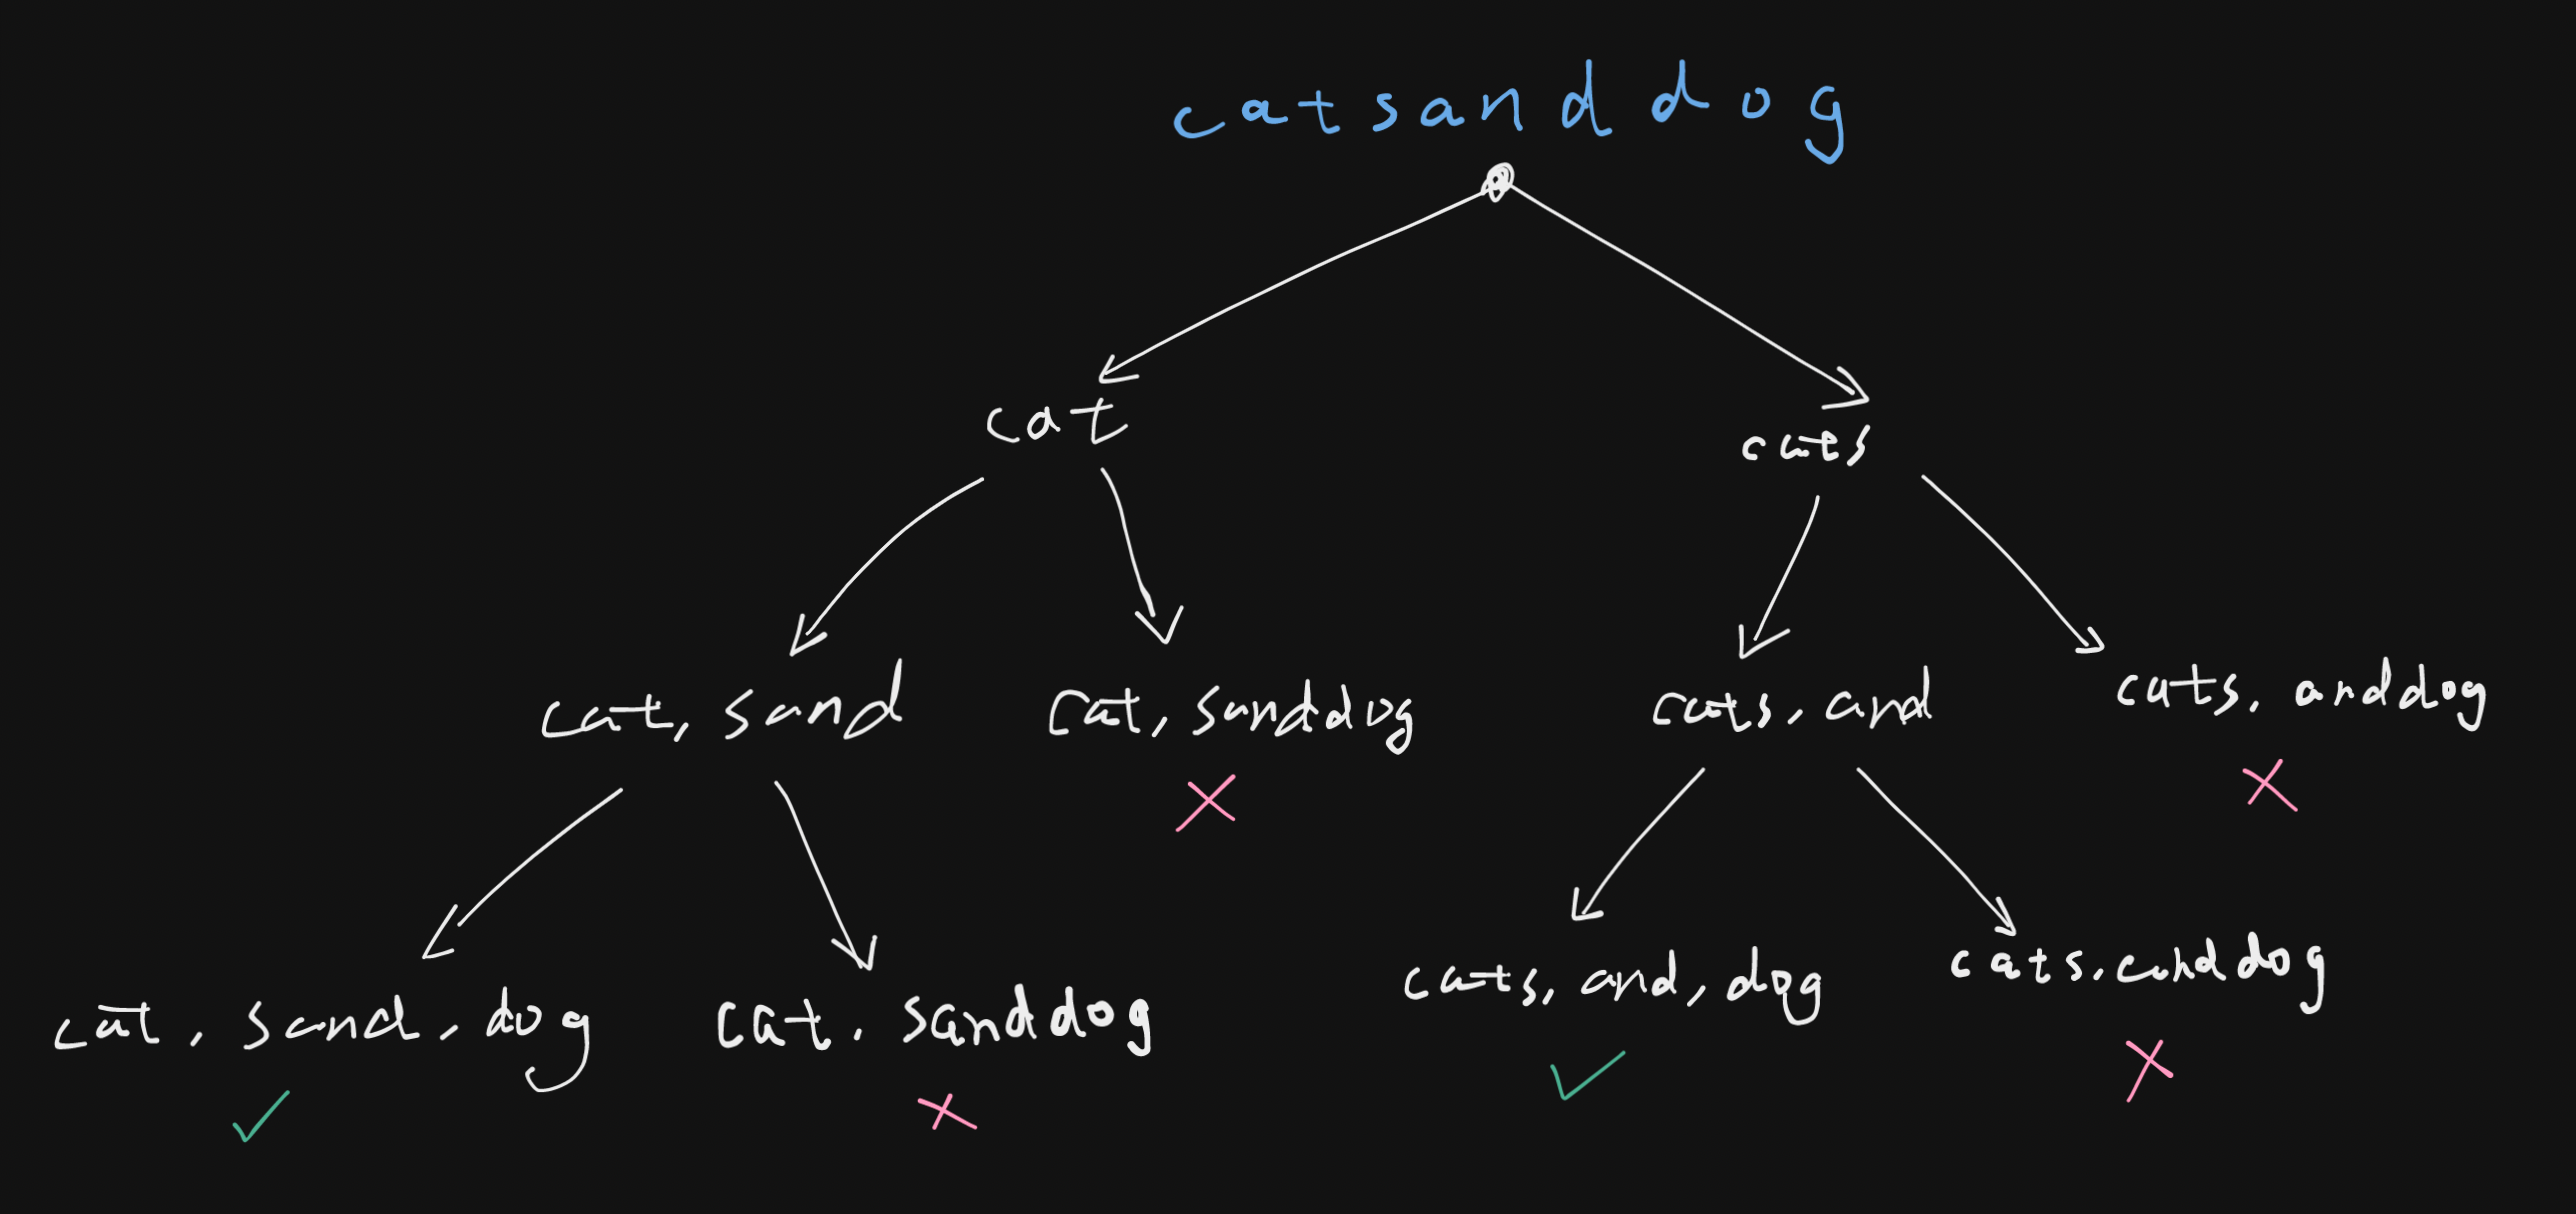 catsanddog
cat
cats
cat, sand
cat, sanddog
cats, and
cats, anddog
cat, sand, dog
cat, sanddog
cats, and, dog
cats, anddog